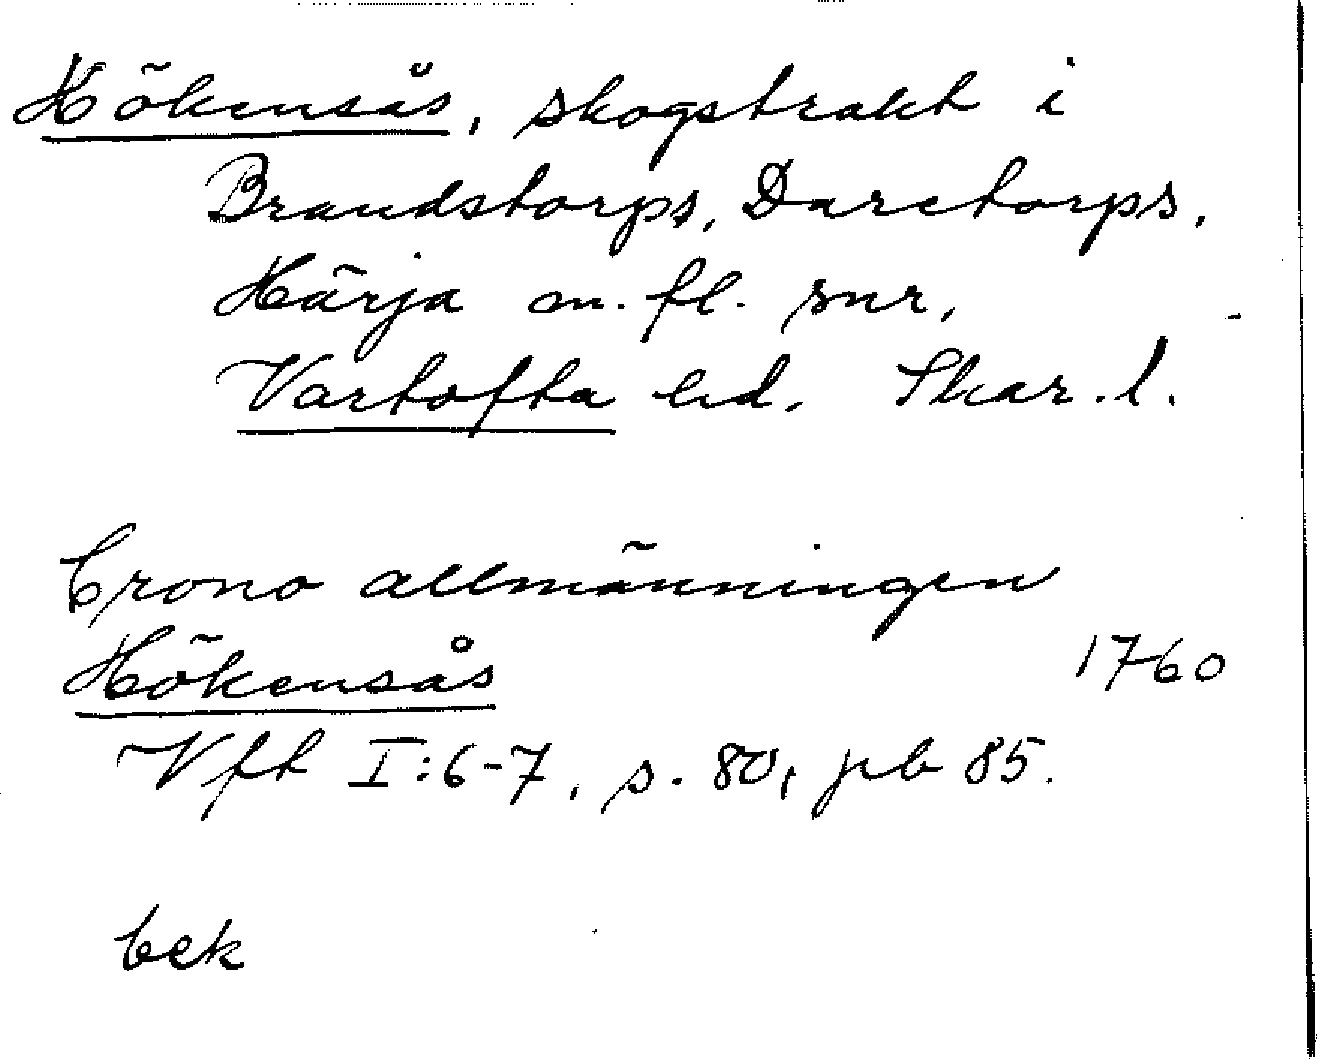 Hökensås, skogstrakt i
Brandstorps, Daretorps,
Härja m. fl. snr,
Vartofta hd. Skar. l.
Crono allmänningen
Hökensås 1760
Vft I:6-7, s. 80, pb 85.
bek